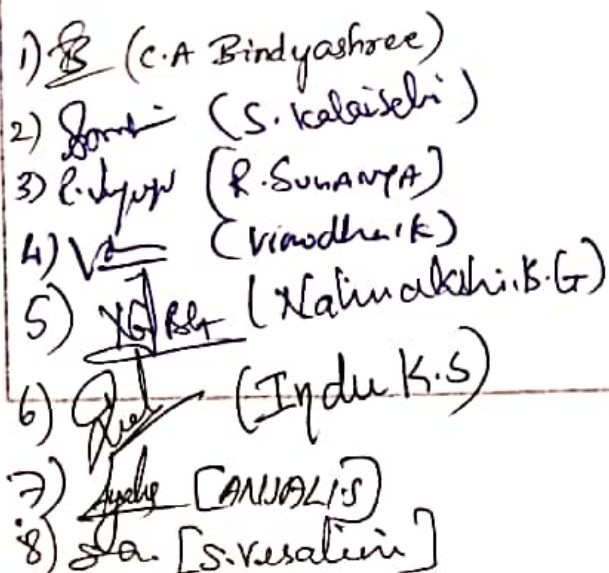 1) (C.A Bindyashree)
2) (S. Kalaiselvi)
3) [R. SUKANYA]
4) (Vinodha.K)
5) (Nalinakshi.B.G)
6) (Indu K.S)
7) [ANJALI.S]
8) [S.Vesalini]